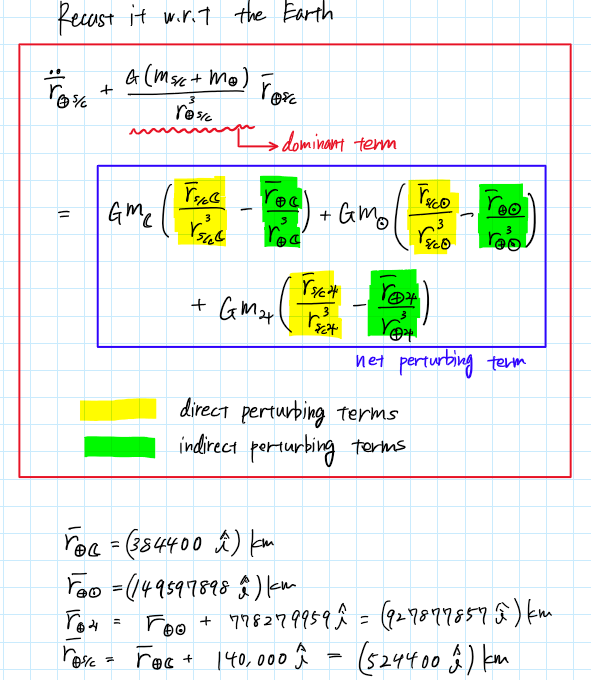 Recast it w.r.t the Earth
r̈̄⊕s/c + G(ms/c + m⊕)/r³⊕s/c r̄⊕s/c
→ dominant term
= Gm☾ ( r̄s/c☾/r³s/c☾ − r̄⊕☾/r³⊕☾ ) + Gm☉ ( r̄s/c☉/r³s/c☉ − r̄⊕☉/r³⊕☉ )
+ Gm♃ ( r̄s/c♃/r³s/c♃ − r̄⊕♃/r³⊕♃ )
net perturbing term
direct perturbing terms
indirect perturbing terms
r̄⊕☾ = (384400 î) km
r̄⊕☉ = (149597898 î) km
r̄⊕♃ = r̄⊕☉ + 778279959 î = (927877857 î) km
r̄⊕s/c = r̄⊕☾ + 140,000 î = (524400 î) km